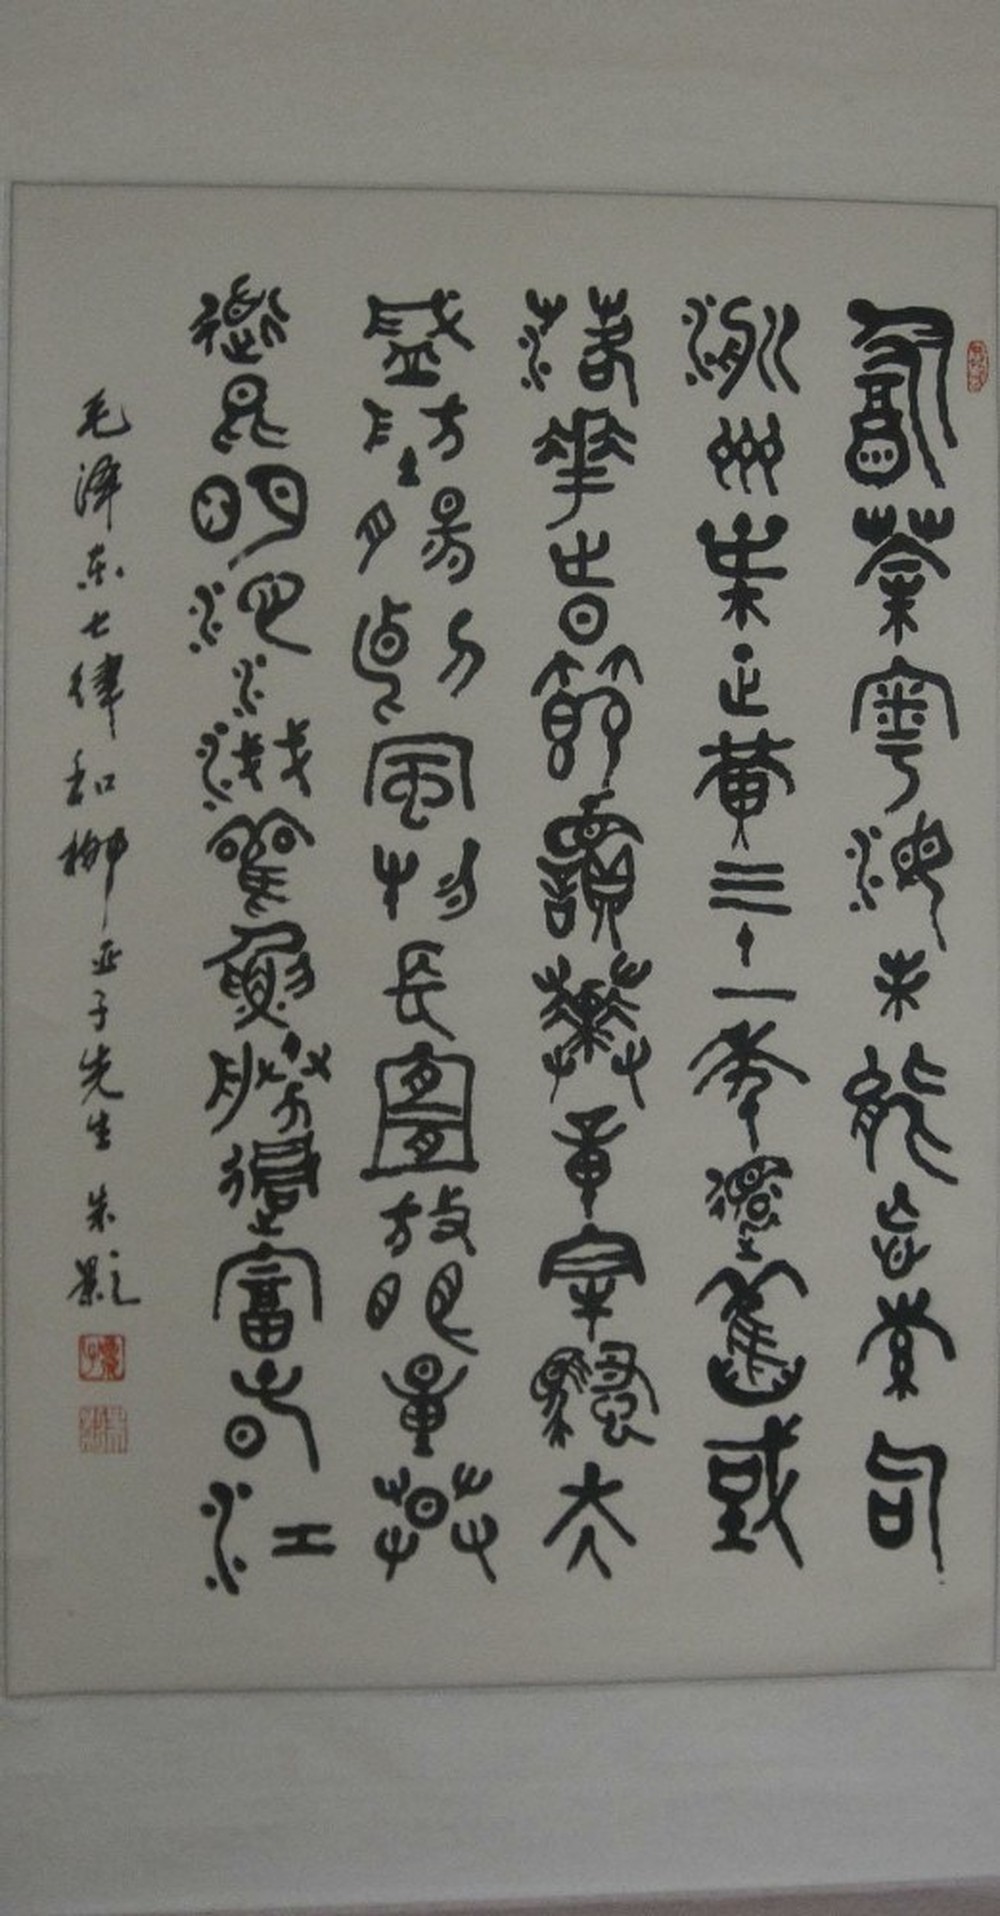 飲茶粵海未能忘索句
渝州葉正黃三十一年還舊國
落花時節讀華章牢騷太
盛防腸斷風物長宜放眼量莫
道昆明池水淺觀魚勝過富春江
毛澤东七律和柳亚子先生 朱